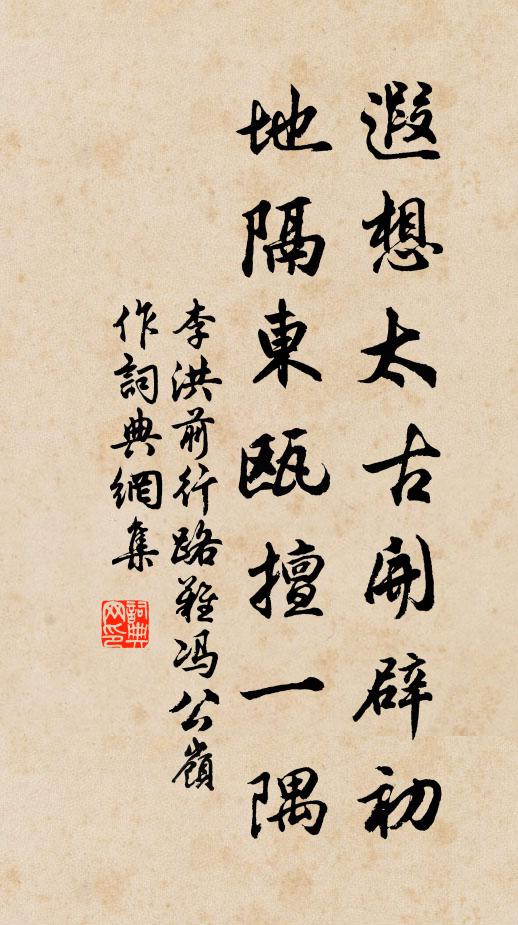 遐想太古開辟初
地隔東甌擅一隅
李洪前行路難冯公嶺
作詞典網集
詞典网印